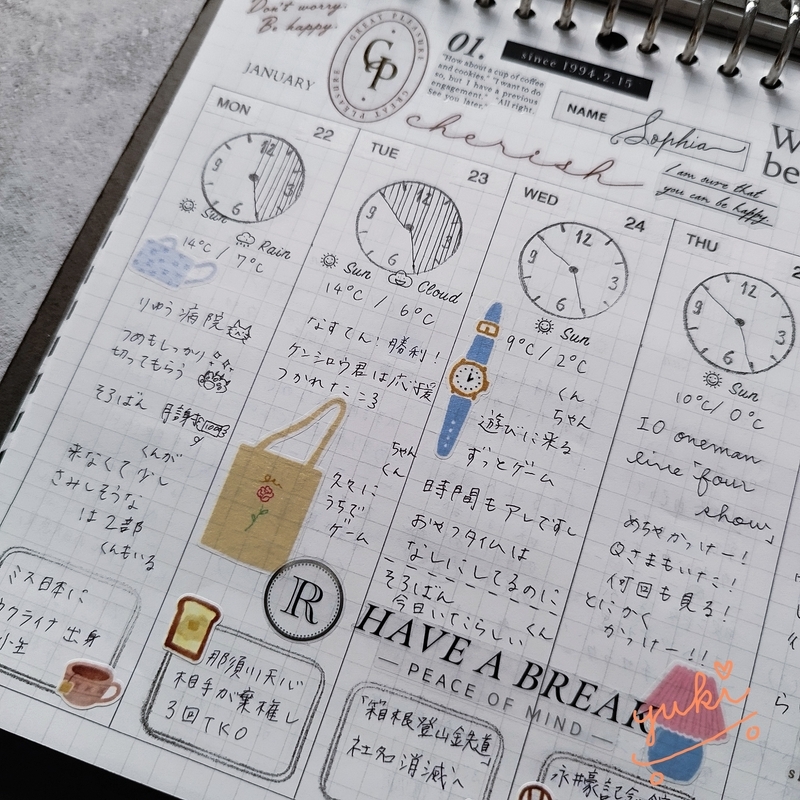 Don't worry.
Be happy.
GREAT PLEASURE
GP
GREAT PLEASURE
01.
"How about a cup of coffee
and cookies." "I want to do
so, but I have a previous
engagement." "All right.
See you later."
since 1994.2.15
NAME
Sophia
JANUARY
cherish
I am sure that
you can be happy
W
be
MON
22
12
3
6
9
Sun
Rain
14°C / 7°C
りゅう病院
つめもしっかり
切ってもらう
そろばん 月謝
くんが
来なくて少し
さみしそうな
は2部
くんもいる
ミス日本に
ウクライナ出身
小生
TUE
23
12
3
6
9
Sun
Cloud
14°C / 6°C
なすてん!勝利!
ケンシロウ君は応援
つかれたころ
ちゃん
くん
久々に
うちで
ゲーム
R
那須川天心
相手が棄権し
3回TKO
WED
24
12
3
6
9
Sun
9°C / 2°C
くん
ちゃん
遊びに来る
ずっとゲーム
時間もアレですし
おやつタイムは
なしにしてるのに
そろばん
今日いてらしい
くん
HAVE A BREAK
— PEACE OF MIND —
「箱根登山鉄道」
社名消滅へ
THU
2
12
3
6
9
Sun
10°C / 0°C
IO oneman
live「four
show」
めちゃかっけー!
Qさまもいた!
何回も見る!
とにかく
かっけー!!
永井豪記念館
yuki